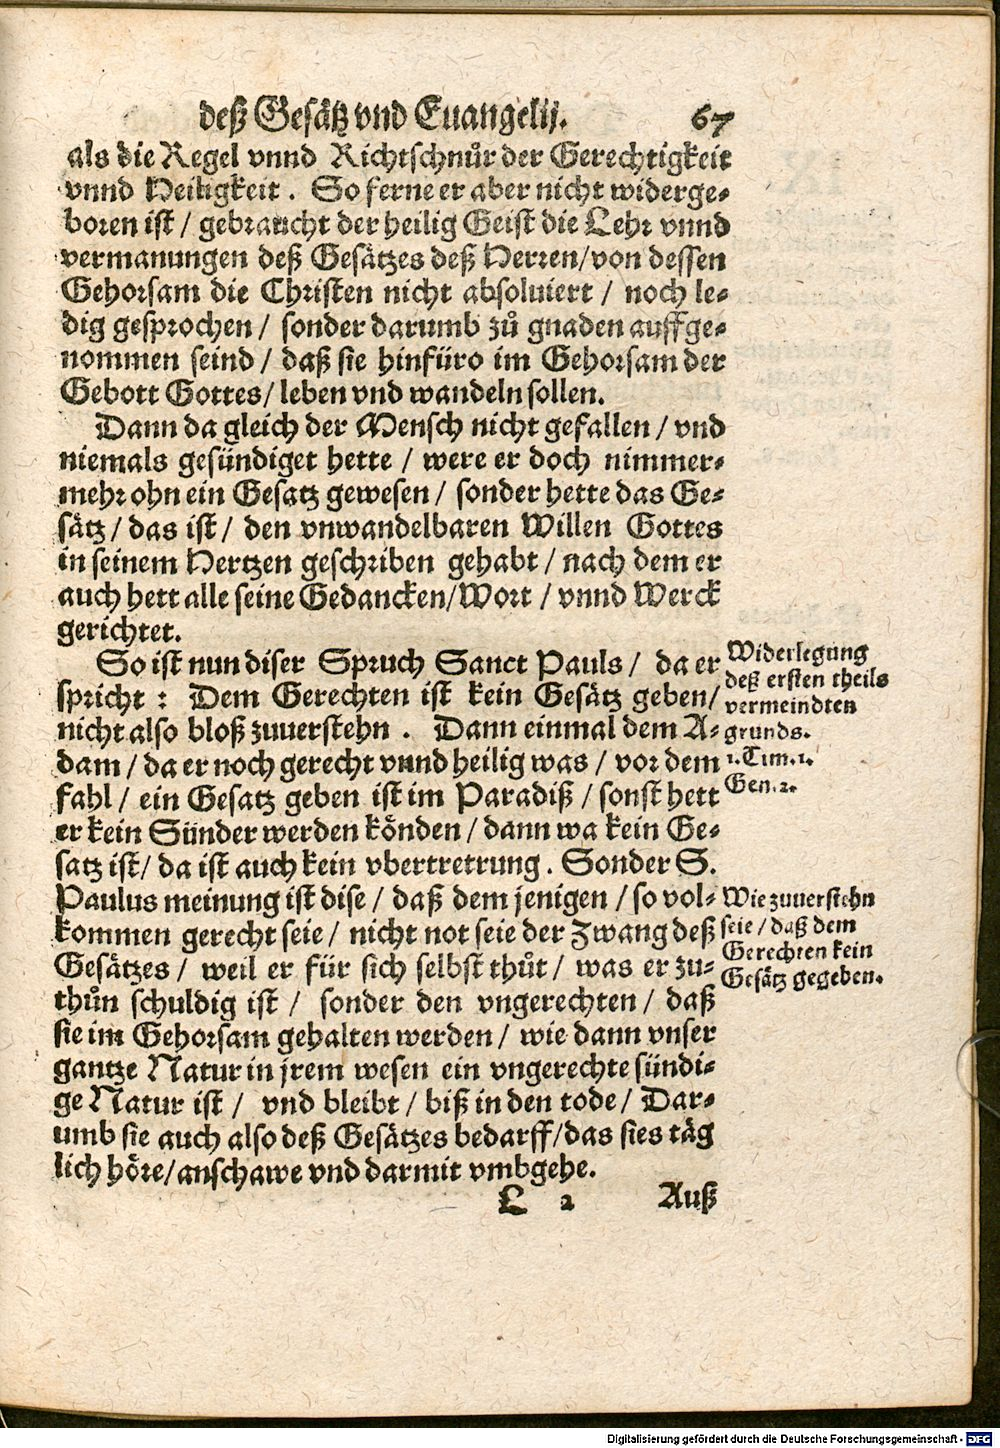 deß Gesätz vnd Euangelij. 67
als die Regel vnnd Richtschnůr der Gerechtigkeit
vnnd Heiligkeit. So ferne er aber nicht widerge-
boren ist / gebraucht der heilig Geist die Lehr vnnd
vermanungen deß Gesätzes deß Herren/von dessen
Gehorsam die Christen nicht absoluiert / noch le-
dig gesprochen / sonder darumb zů gnaden auffge-
nommen seind / daß sie hinfüro im Gehorsam der
Gebott Gottes/ leben vnd wandeln sollen.
Dann da gleich der Mensch nicht gefallen / vnd
niemals gesündiget hette / were er doch nimmer-
mehr ohn ein Gesatz gewesen / sonder hette das Ge-
sätz / das ist / den vnwandelbaren Willen Gottes
in seinem Hertzen geschriben gehabt / nach dem er
auch hett alle seine Gedancken/Wort / vnnd Werck
gerichtet.
So ist nun diser Spruch Sanct Pauls / da er
spricht : Dem Gerechten ist kein Gesätz geben/
nicht also bloß zuuerstehn . Dann einmal dem A-
dam / da er noch gerecht vnnd heilig was / vor dem
fahl / ein Gesatz geben ist im Paradiß / sonst hett
er kein Sünder werden könden / dann wa kein Ge-
satz ist/ da ist auch kein vbertretrung. Sonder S.
Paulus meinung ist dise / daß dem jenigen / so vol-
kommen gerecht seie / nicht not seie der Zwang deß
Gesätzes / weil er für sich selbst thůt / was er zu-
thůn schuldig ist / sonder den vngerechten / daß
sie im Gehorsam gehalten werden / wie dann vnser
gantze Natur in jrem wesen ein vngerechte sündi-
ge Natur ist / vnd bleibt / biß in den tode / Dar-
umb sie auch also deß Gesätzes bedarff/das sies täg
lich höre/anschawe vnd darmit vmbgehe.
L 2 Auß
Widerlegung
deß ersten theils
vermeindten
grunds.
1.Tim.1.
Gen.2.
Wie zuuerstehn
seie / daß dem
Gerechten kein
Gesätz gegeben.
Digitalisierung gefördert durch die Deutsche Forschungsgemeinschaft - DFG